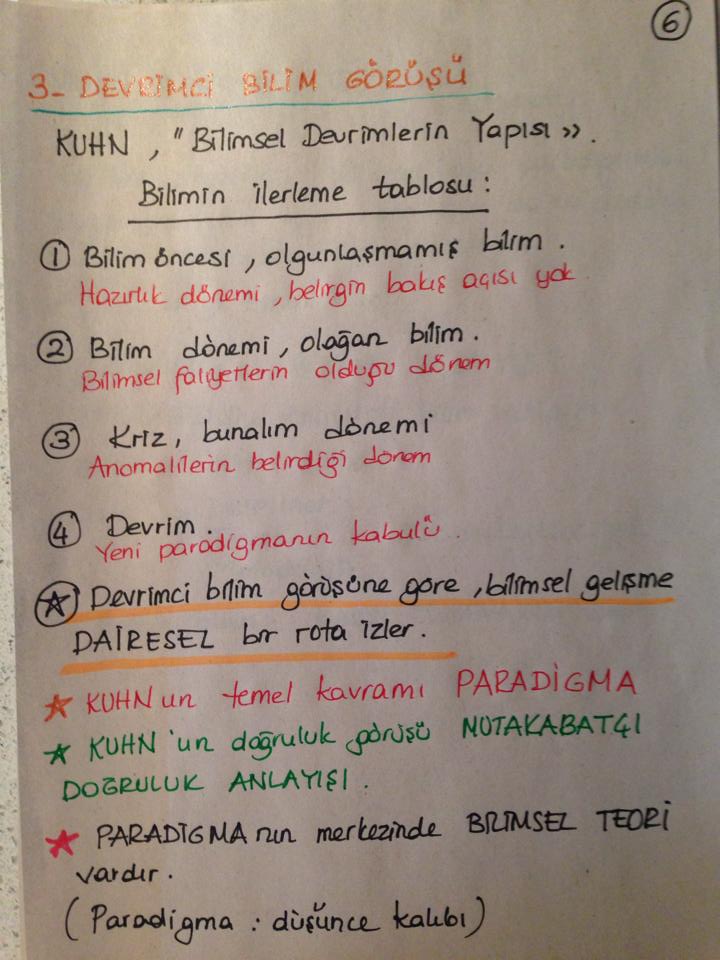 6
3- DEVRİMCİ BİLİM GÖRÜŞÜ
KUHN , "Bilimsel Devrimlerin Yapısı ».
Bilimin ilerleme tablosu :
① Bilim öncesi , olgunlaşmamış bilim .
Hazırlık dönemi , belirgin bakış açısı yok
② Bilim dönemi , olağan bilim .
Bilimsel faliyetlerin olduğu dönem
③ Kriz , bunalım dönemi
Anomalilerin belirdiği dönem
④ Devrim .
Yeni paradigmanın kabulü .
☆ Devrimci bilim görüşüne göre , bilimsel gelişme
DAİRESEL bir rota izler .
☆ KUHN un temel kavramı PARADİGMA
☆ KUHN 'un doğruluk görüşü MUTAKABATÇI
DOĞRULUK ANLAYIŞI .
☆ PARADİGMA nın merkezinde BİLİMSEL TEORİ
vardır .
( Paradigma : düşünce kalıbı )